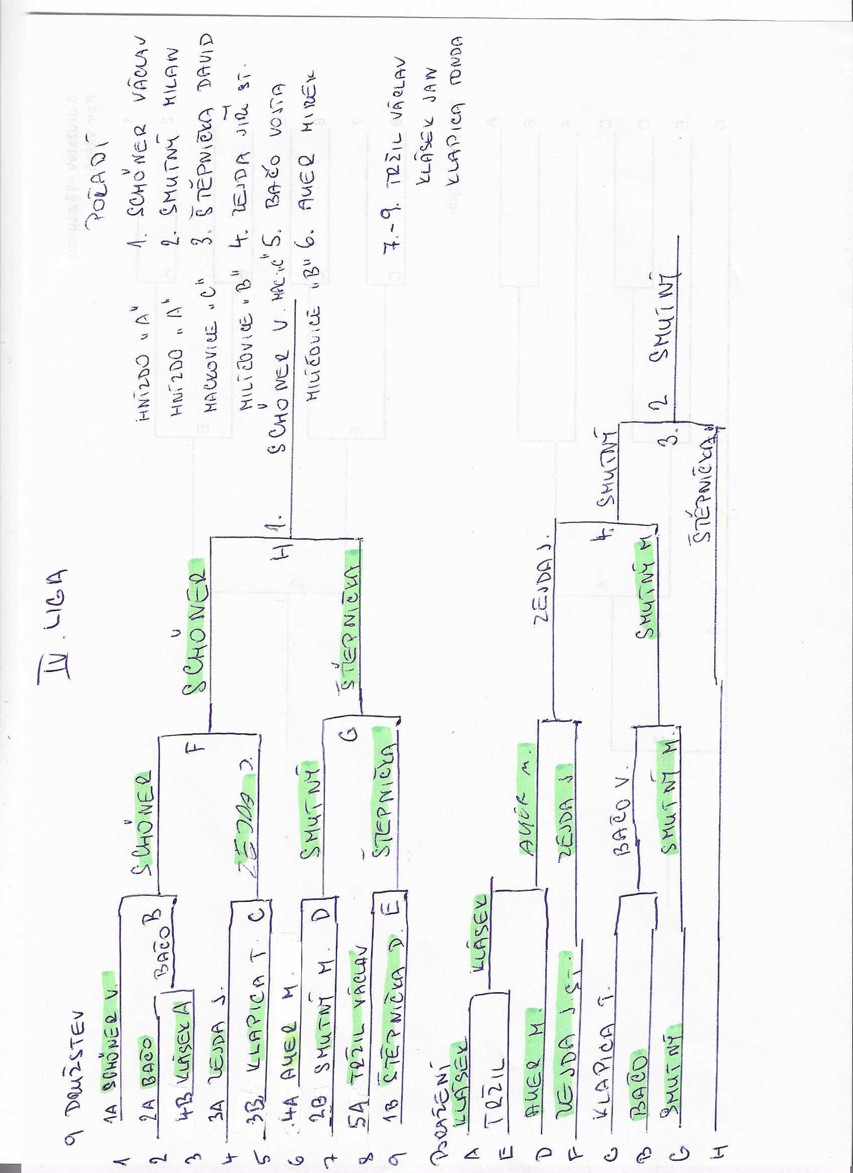 IV. LIGA
9 DRUŽSTEV
1 1A SCHÖNER V.
2 2A BAČO
3 4B KLÁSEK A
4 3A ZEJDA J.
5 3B KLAPICA T. C
6 4A AUER M.
7 2B SMUTNÝ M. D
8 5A TRŽIL VÁCLAV
9 1B ŠTĚPNIČKA D. E
BAČO B
SCHÖNER
ZEJDA J.
SMUTNÝ
ŠTĚPNIČKA
F
G
SCHÖNER
ŠTĚPNIČKA
H 1.
SCHÖNER V.
POŘADÍ
HNÍZDO "A" 1. SCHÖNER VÁCLAV
HNÍZDO "A" 2. SMUTNÝ MILAN
MACKOVICE "C" 3. ŠTĚPNIČKA DAVID
MILÍČOVICE "B" 4. ZEJDA JIŘÍ ST.
MAC. "C" 5. BAČO VOJTA
MILÍČOVICE "B" 6. AUER MIREK
7.-9. TRŽIL VÁCLAV
KLÁSEK JAN
KLAPICA TONDA
PORAŽENÍ
A KLÁSEK
E TRŽIL
D AUER M.
F ZEJDA J. ST.
C KLAPICA T.
B BAČO
G SMUTNÝ
H
KLÁSEK
AUER M.
ZEJDA J.
BAČO V.
SMUTNÝ M.
ZEJDA J.
SMUTNÝ M.
4.
SMUTNÝ
ŠTĚPNIČKA
3.
2 SMUTNÝ